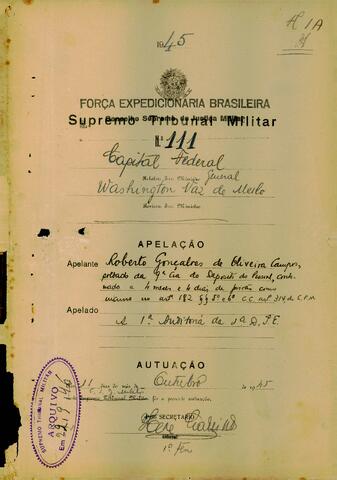 1945
FORÇA EXPEDICIONARIA BRASILEIRA
Conselho Supremo de Justiça Militar
Supremo Tribunal Militar
N.º 111
Capital Federal
Relator Snr. Ministro General
Washington Vaz de Mello
Revisor Snr. Ministro
APELAÇÃO
Apelante Roberto Gonçalves de Oliveira Campos,
soldado da 9ª Cia do Deposito do Pessoal, conde-
nado a 4 meses e 4 dias de prisão como
incurso no artº 182 §§ 5º e 6º C.C. artº 314 do C.P.M.
Apelado
A 1ª Auditoria da 1ª D.I.E.
AUTUAÇÃO
11 dias do mês de Outubro de 1945
Supremo Tribunal Militar foi a presente autuação.
SECRETARIO
1º Ten
SUPREMO TRIBUNAL MILITAR
ARQUIVO
Em